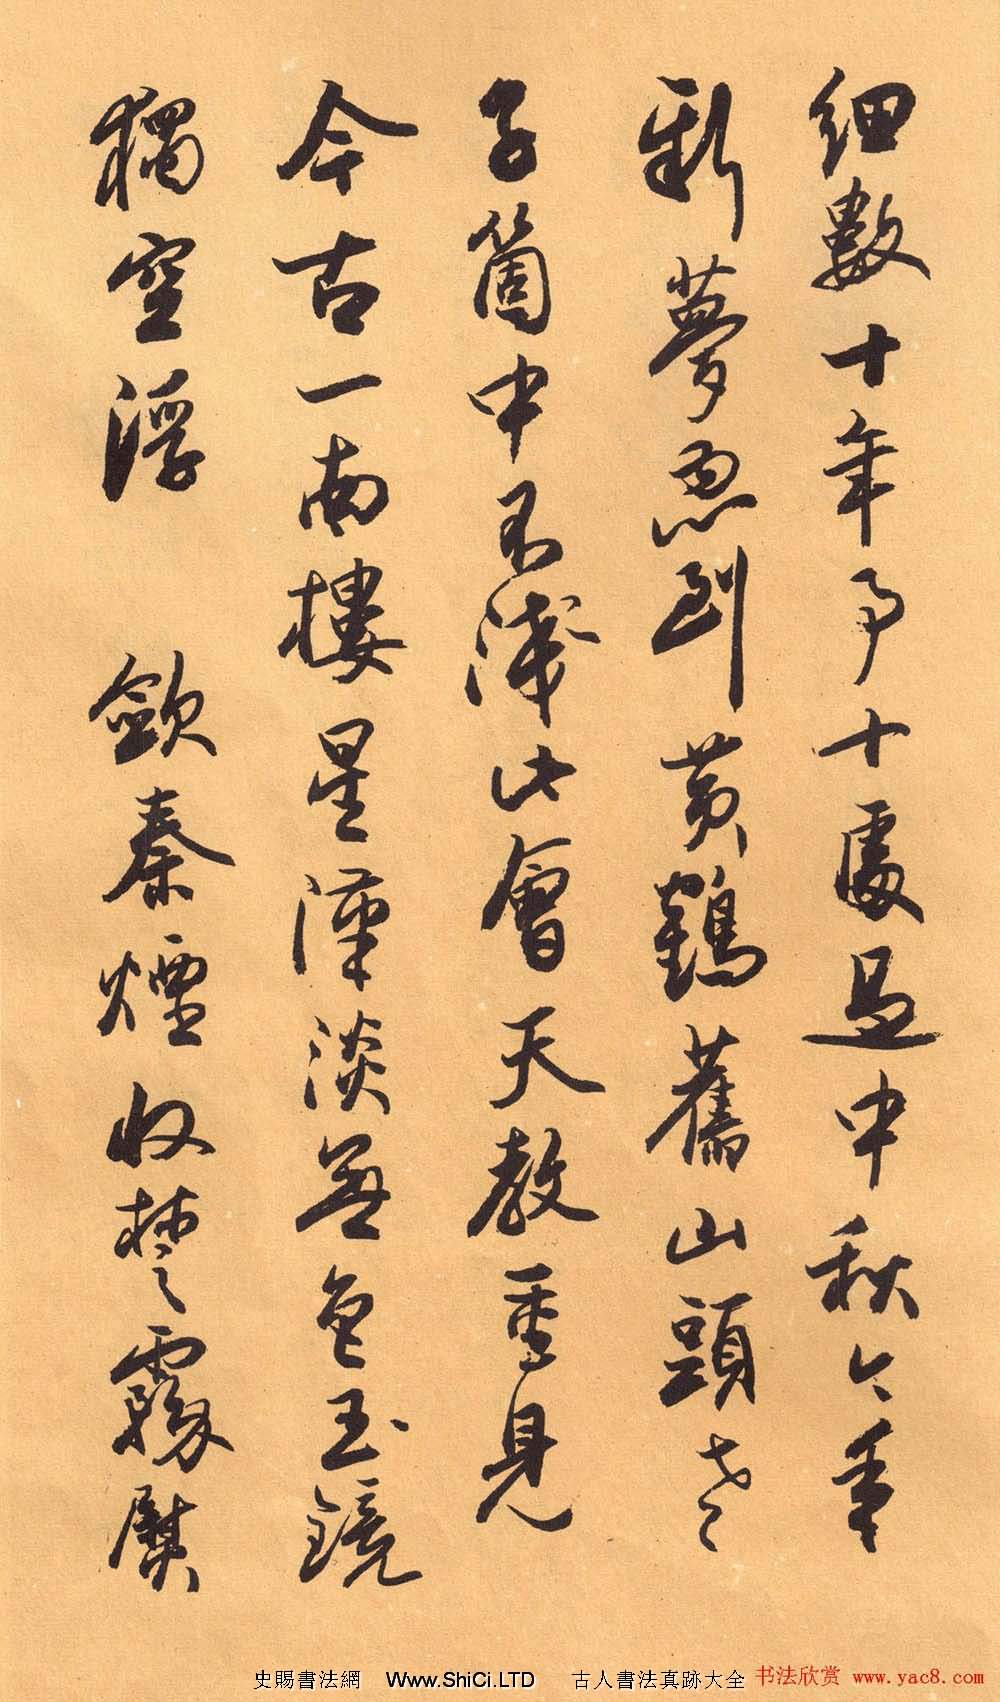 細數十年事十處過中秋今年
新夢忽到黃鶴舊山頭老
子箇中不淺此會天教重見
今古一南樓星漢淡無色玉鏡
獨空浮 歛秦煙收楚霧熨
史賜書法網 Www.ShiCi.LTD 古人書法真跡大全 书法欣赏 www.yac8.com